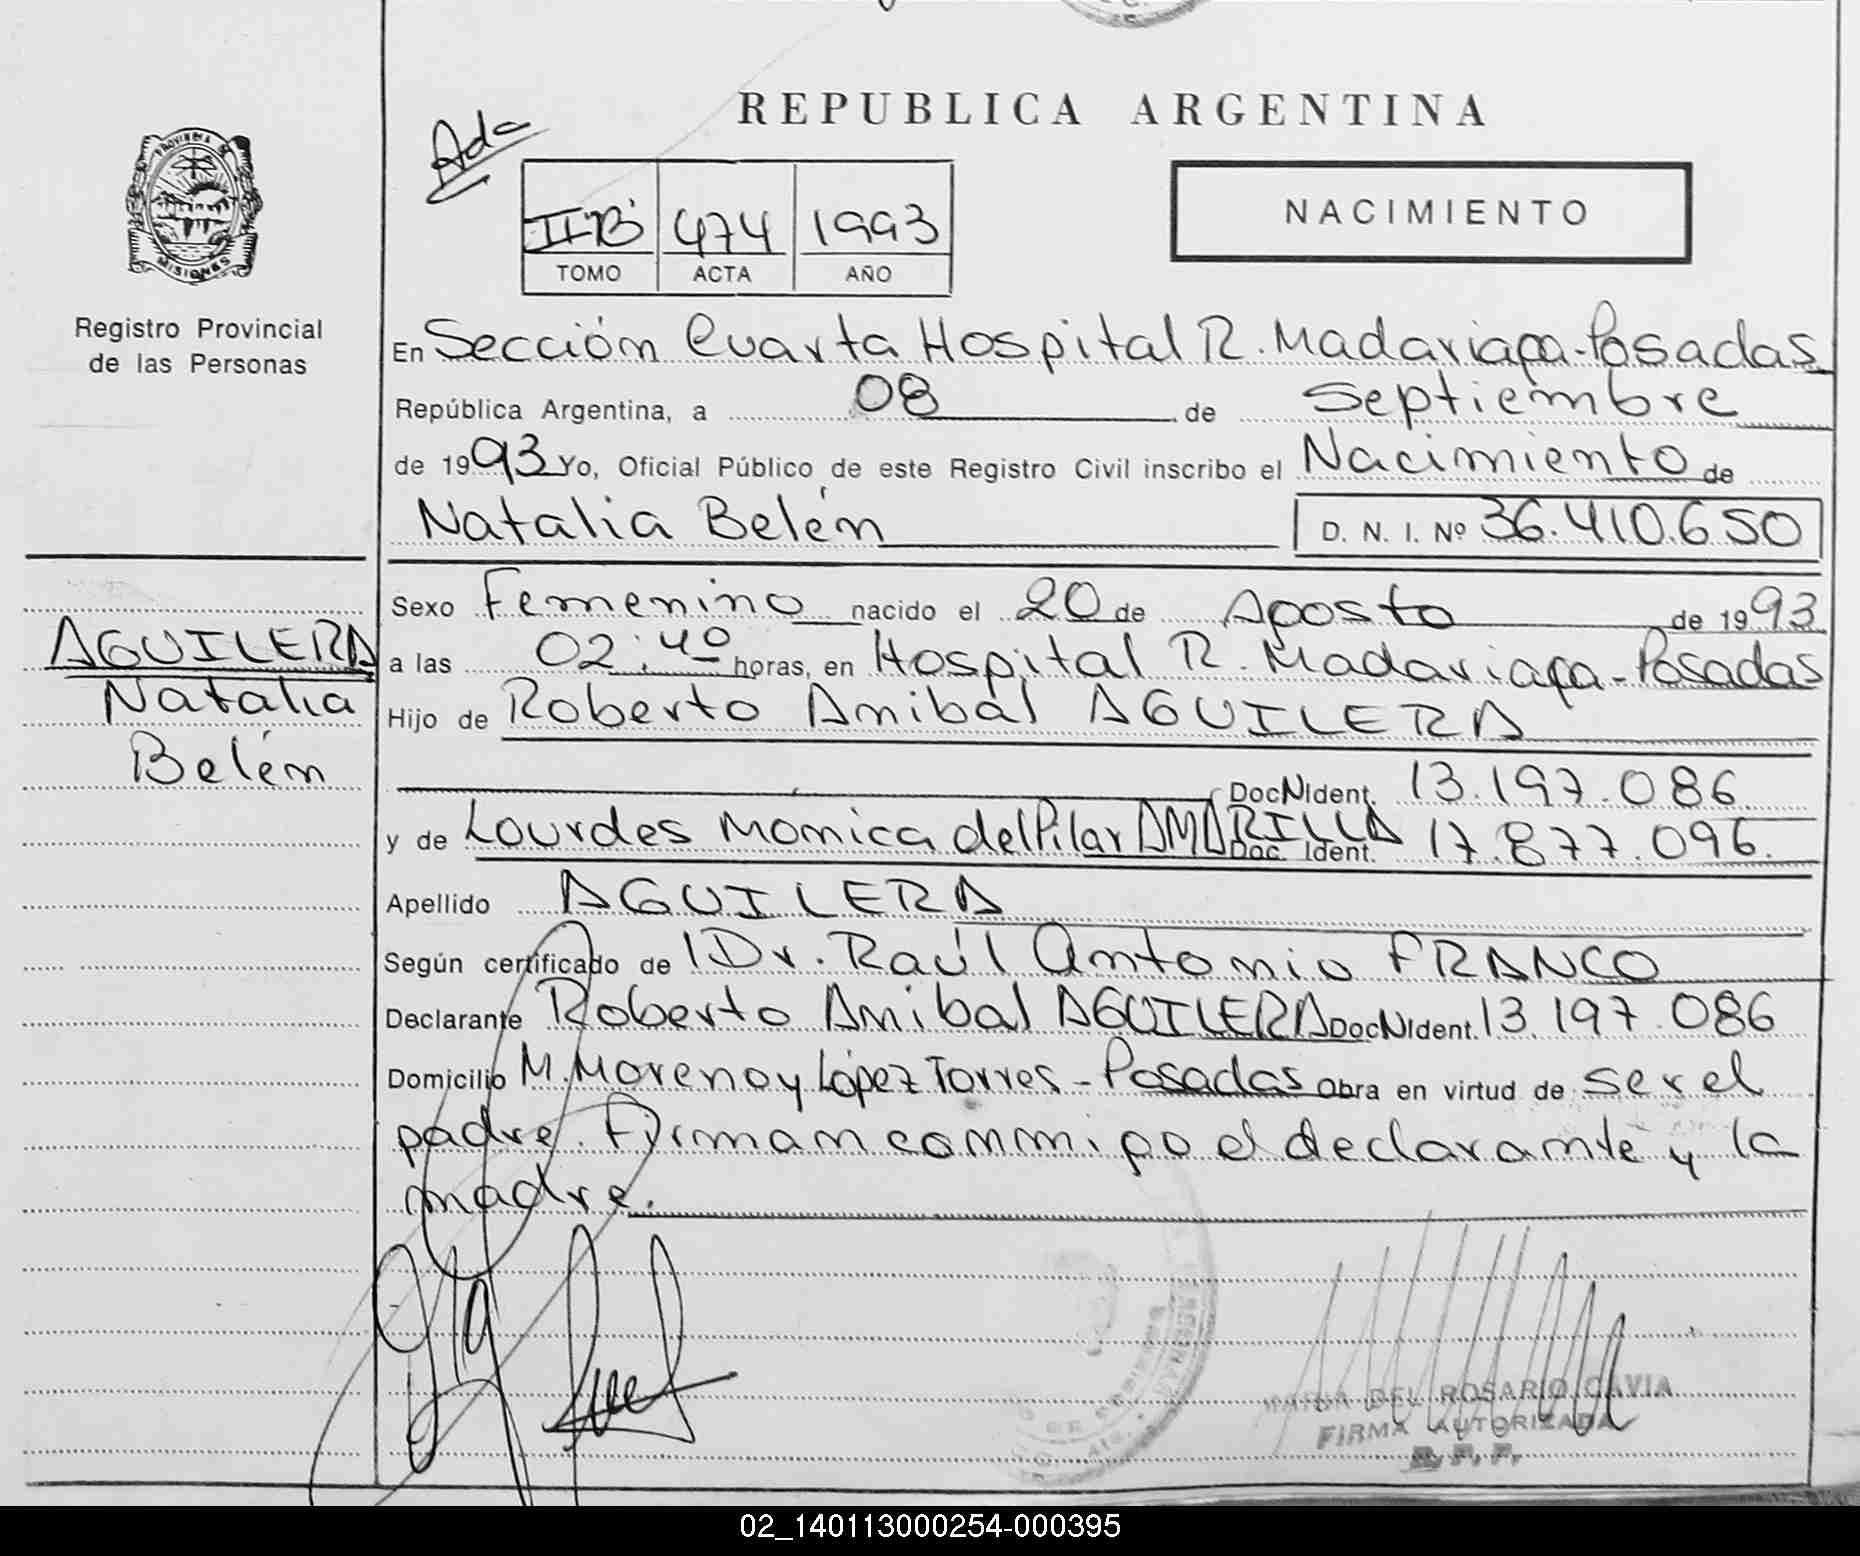 REPUBLICA ARGENTINA
Ada
PROVINCIA DE
MISIONES
IIB 474 1993
TOMO ACTA AÑO
NACIMIENTO
Registro Provincial
de las Personas
En Sección Cuarta Hospital R. Madariaga-Posadas
República Argentina, a 08 de Septiembre
de 1993 Yo, Oficial Público de este Registro Civil inscribo el Nacimiento de
Natalia Belén D. N. I. Nº 36.410.650
AGUILERA
Natalia
Belén
Sexo Femenino nacido el 20 de Agosto de 1993
a las 02:40 horas, en Hospital R. Madariaga-Posadas
Hijo de Roberto Anibal AGUILERA
DocNIdent. 13.197.086
y de Lourdes Monica del Pilar AMARILLA Doc. Ident. 17.877.096.
Apellido AGUILERA
Según certificado de Dr. Raúl Antonio FRANCO
Declarante Roberto Anibal AGUILERA DocNIdent. 13.197.086
Domicilio M. Moreno y López Torres - Posadas obra en virtud de ser el
padre. Firman conmigo el declarante y la
madre.
MARIA DEL ROSARIO GAVIA
FIRMA AUTORIZADA
R. P. P.
02_140113000254-000395